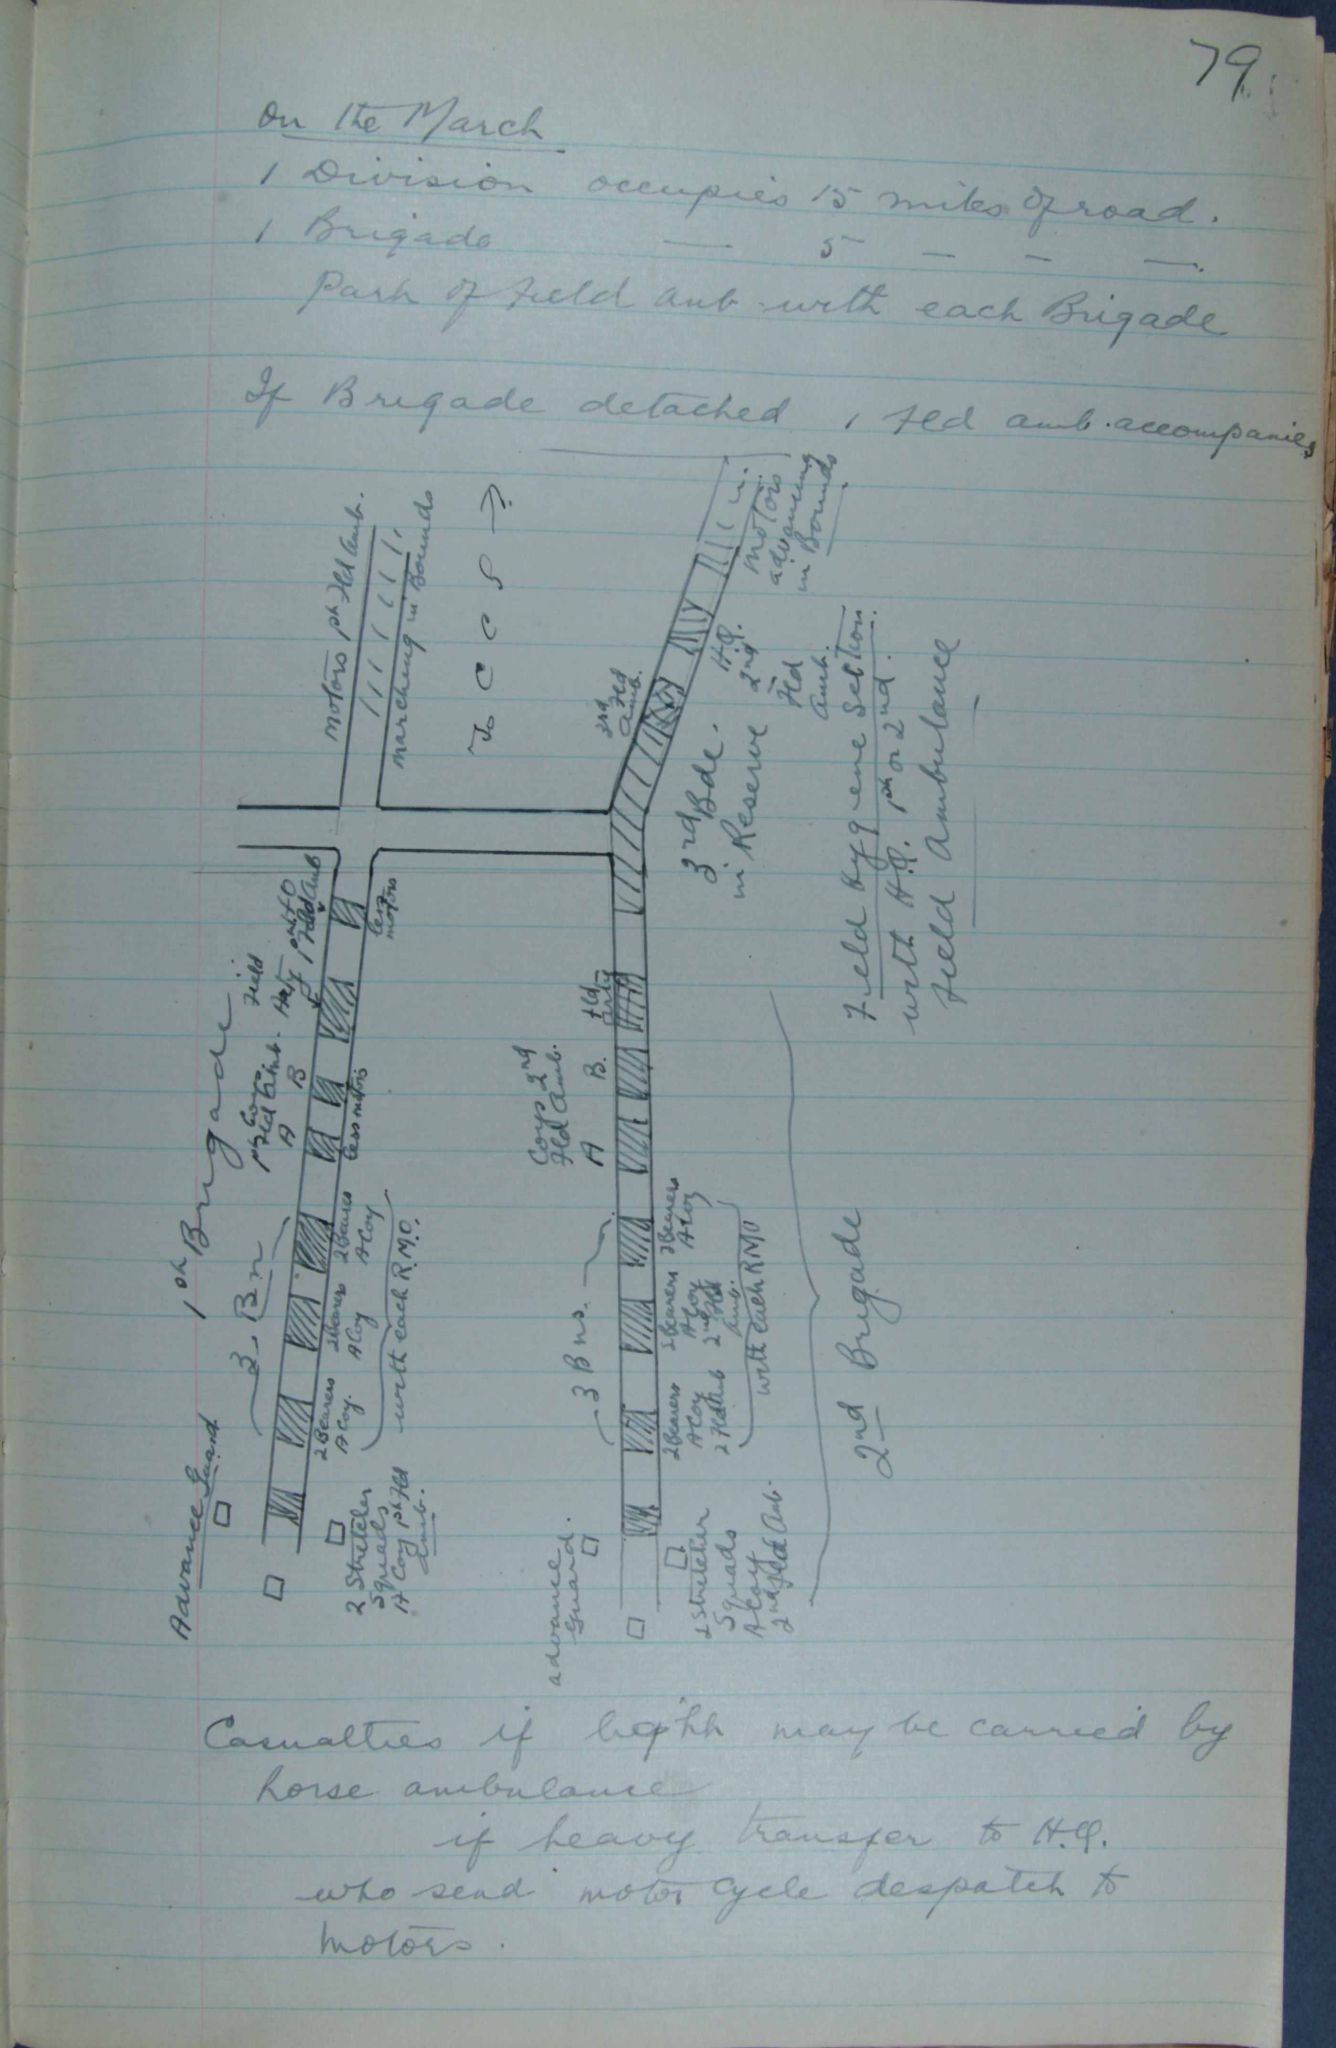 79
On the March
1 Division occupies 15 miles of road.
1 Brigade — 5 — — —.
Part of Field Amb with each Brigade
If Brigade detached 1 Fld Amb. accompanies
Motors 1st Fld Amb.
marching in Bounds
To C C S →
1st Brigade
Field
Arty
1st Fld Amb
less motors
1st Coys
Fld Amb.
A B
less motors
3 Bn
2 Bearers
A Coy
2 Bearers
A Coy
2 Bearers
A Coy.
with each R.M.O.
Advance Guard
2 Stretcher
Squads
A Coy 1st Fld
Amb.
motors
advancing
in Bounds
H.Q.
2nd
Fld
Amb.
3rd
Fld
Amb.
3rd Bde.
in Reserve
Fld
Arty
Coys 2nd
Fld Amb.
A B.
3 Bns.
2 Bearers
A Coy
2 Bearers
A Coy
2nd Fld
Amb.
2 Bearers
A Coy
2 Fld Amb
with each RMO
advance
guard.
2 Stretcher
Squads
A Coy
2nd Fld Amb.
2nd Brigade
Field Hygiene Section
with H.Q. 1st or 2nd.
Field Ambulance
Casualties if light may be carried by
horse ambulance
if heavy transfer to H.Q.
who send motor cycle despatch to
motors.